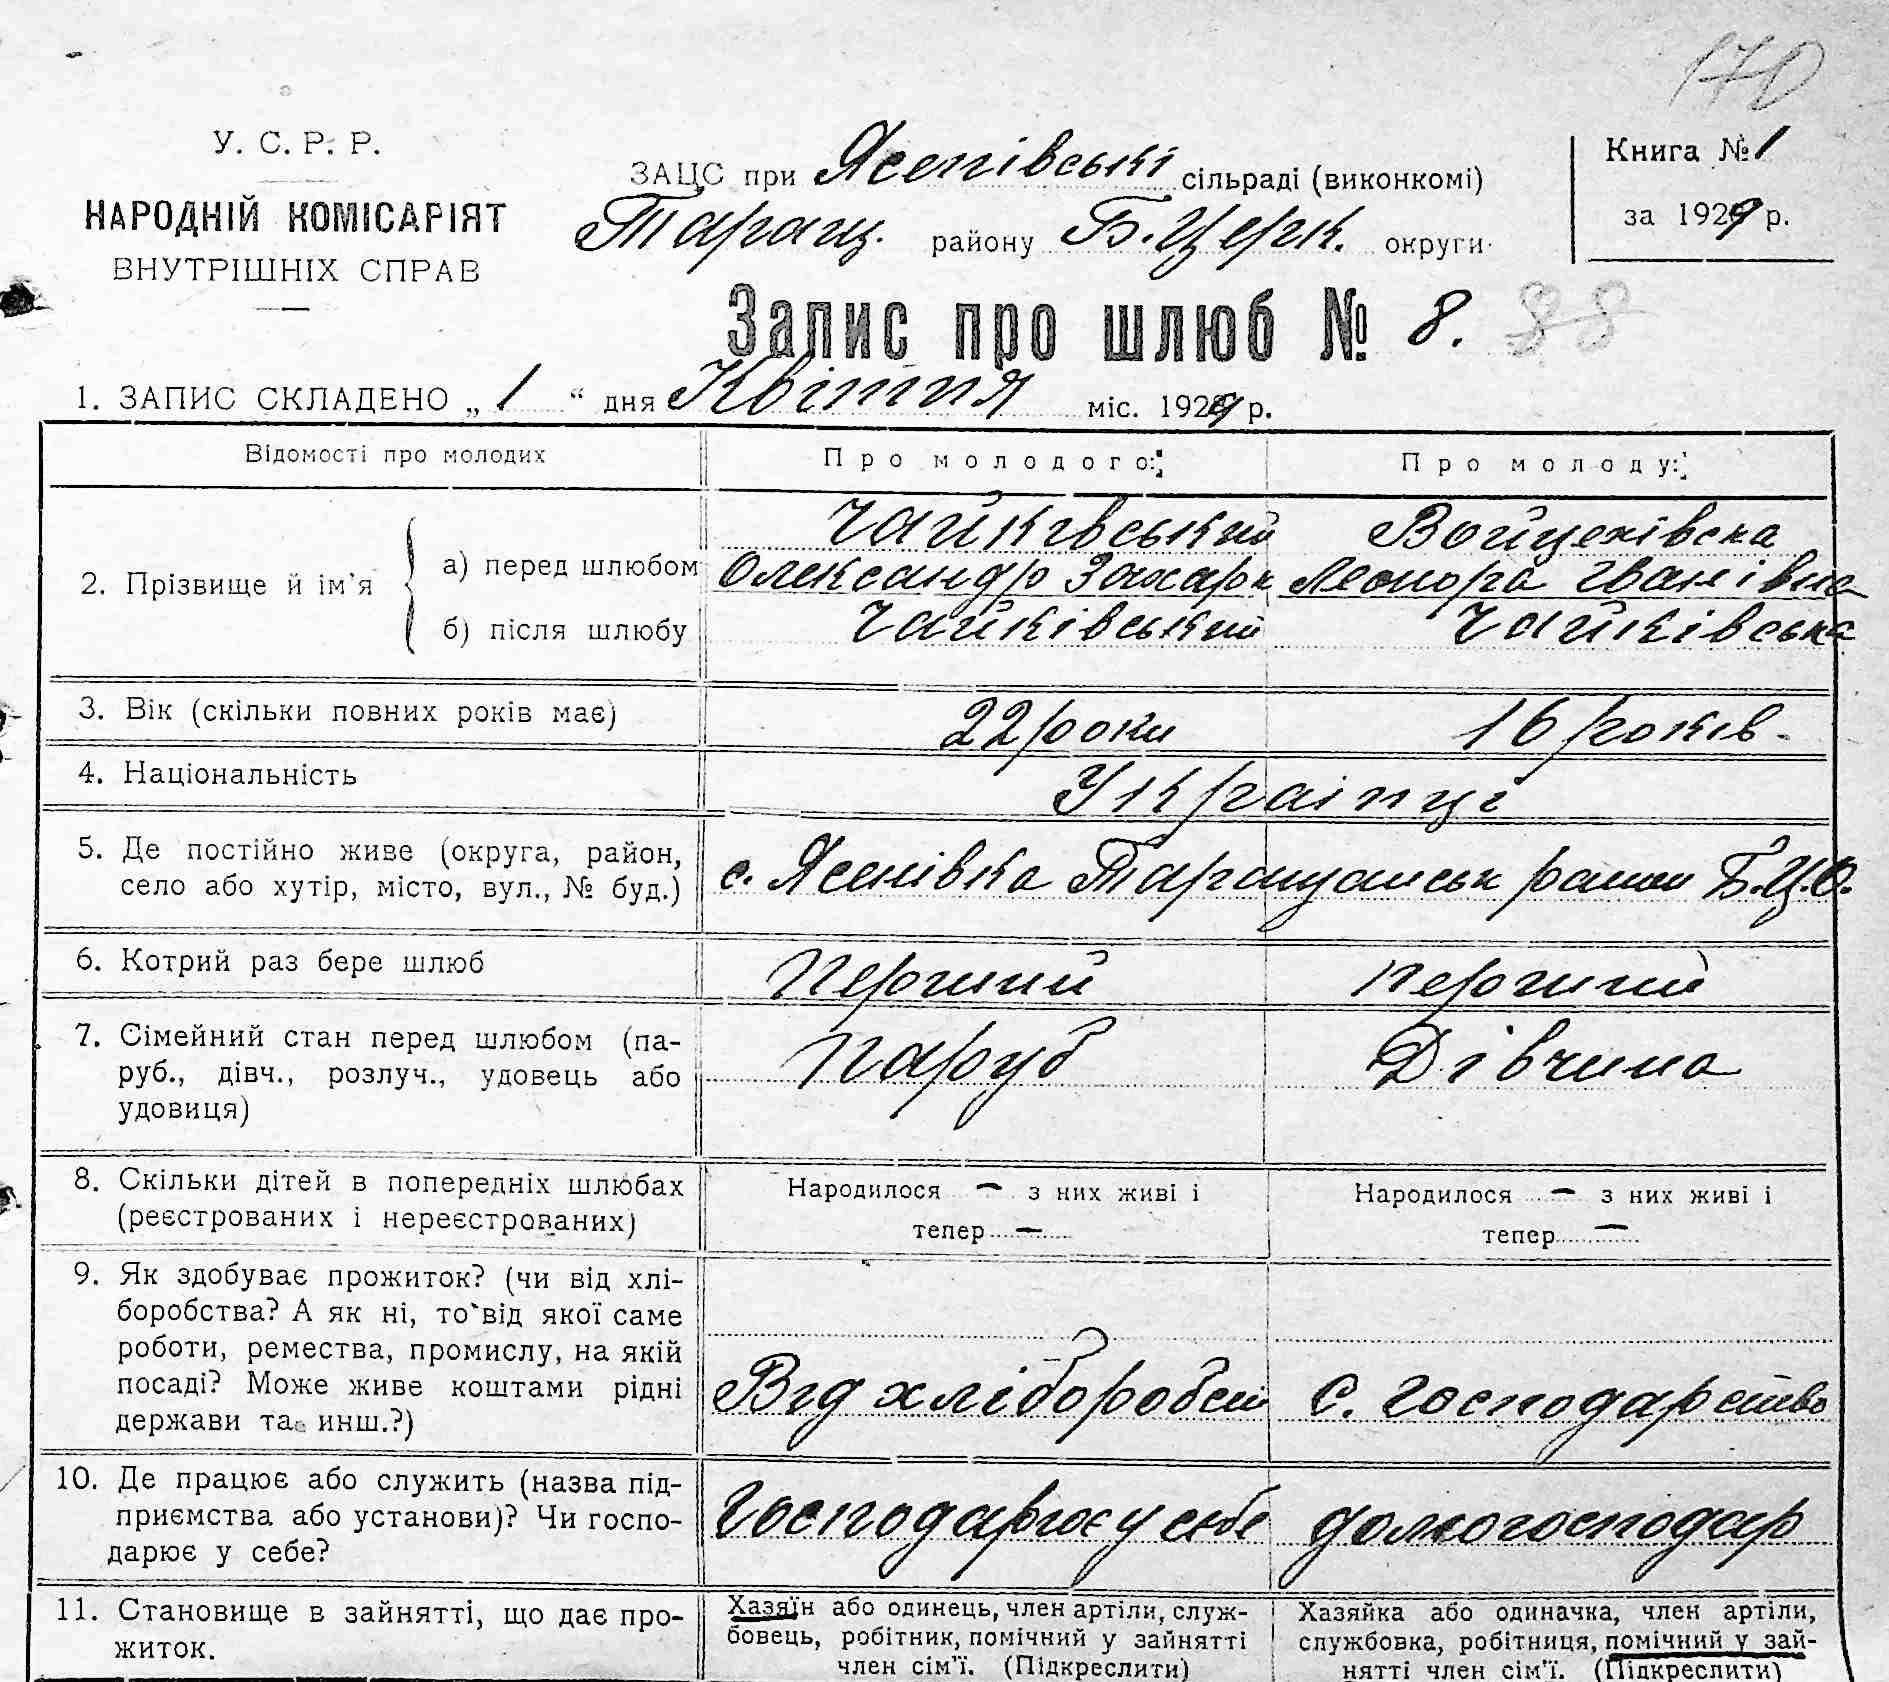 170
У. С. Р. Р.
НАРОДНІЙ КОМІСАРІЯТ
ВНУТРІШНІХ СПРАВ
ЗАЦС при Ясенівські сільраді (виконкомі)
Таращ. району Б. Церк. округи
Книга № 1
за 1929 р.
Запис про шлюб № 8. 88
1. ЗАПИС СКЛАДЕНО „ 1 “ дня Квітня міс. 1929 р.
Відомості про молодих
Про молодого:
Про молоду:
2. Прізвище й ім'я
а) перед шлюбом
Чайківський
Олександр Захарк
Войцехівска
Леонора Іванівна
б) після шлюбу
Чайківський
Чайківська
3. Вік (скільки повних років має)
22 роки
16 років.
4. Національність
Українці
5. Де постійно живе (округа, район,
село або хутір, місто, вул., № буд.)
с. Ясенівка Таращанськ район Б.Ц.О.
6. Котрий раз бере шлюб
Перший
перший
7. Сімейний стан перед шлюбом (па-
руб., дівч., розлуч., удовець або
удовиця)
паруб
Дівчина
8. Скільки дітей в попередніх шлюбах
(реєстрованих і нереєстрованих)
Народилося — з них живі і
тепер —
Народилося — з них живі і
тепер —
9. Як здобуває прожиток? (чи від хлі-
боробства? А як ні, то від якої саме
роботи, ремества, промислу, на якій
посаді? Може живе коштами рідні
держави та инш.?)
Від хліборобст
С. господарство
10. Де працює або служить (назва під-
приємства або установи)? Чи госпо-
дарює у себе?
Господарює у себе
домогосподар
11. Становище в зайнятті, що дає про-
житок.
Хазяїн або одинець, член артіли, служ-
бовець, робітник, помічний у зайнятті
член сім'ї. (Підкреслити)
Хазяйка або одиначка, член артіли,
службовка, робітниця, помічний у зай-
нятті член сім'ї. (Підкреслити)